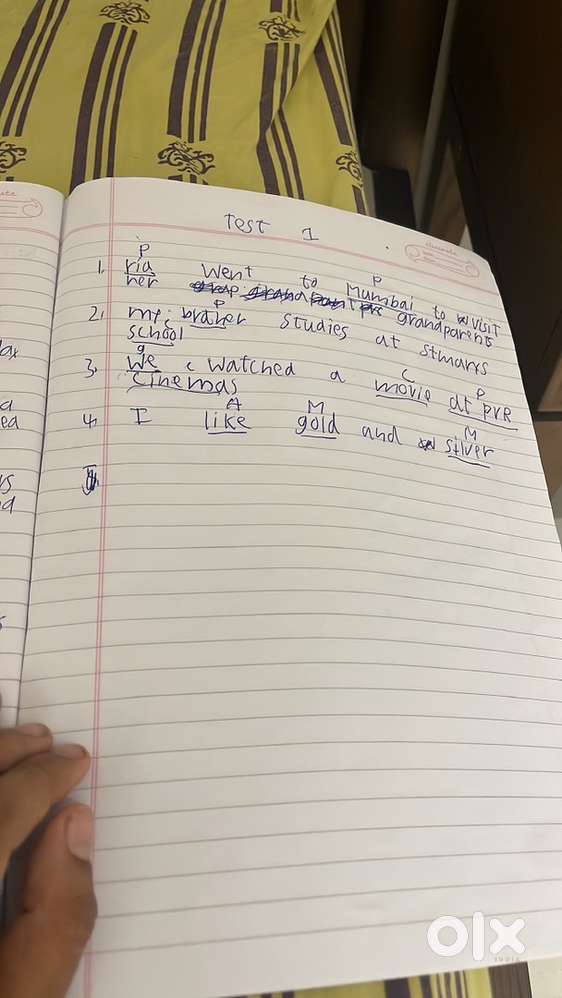 Test 1
P P
1. ria went to Mumbai to visit
her grandparents
P
2. my brather studies at stmars
school
g C P
3. We watched a movie at PVR
cinemas
A M M
4. I like gold and silver
classmate
OLX
India